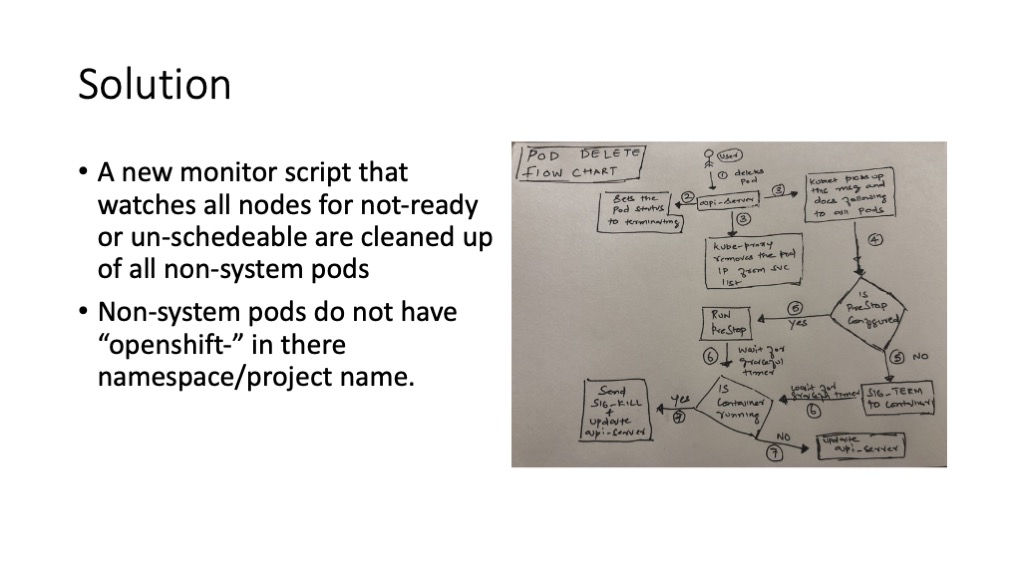 Solution
• A new monitor script that
watches all nodes for not-ready
or un-schedeable are cleaned up
of all non-system pods
• Non-system pods do not have
“openshift-” in there
namespace/project name.
POD DELETE
FLOW CHART
User
① deletes
Pod
Sets the
Pod status
to terminating
②
api-server
③
Kubelet picks up
the msg and
does following
to all pods
③
Kube-proxy
removes the pod
IP from svc
list
④
IS
PreStop
Configured
⑤
Yes
RUN
PreStop
⑤ NO
⑥ wait for
graceful
timer
SIG-TERM
to container
wait for
graceful timer
⑥
IS
Container
running
Yes
⑦
Send
SIG-KILL
+
update
api-server
NO
⑦
update
api-server